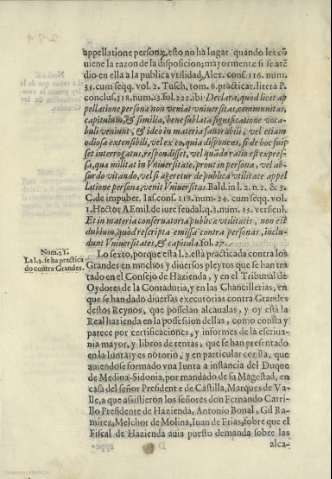 appellatione personæ, esto no ha lugar quando lex cõ
uiene la razon de la disposicion, mayormente si se atẽ
dio en ella a la publica vtilidad, Alex. conf. 116. num.
35. cum seqq. vol. 2. Tusch. tom. 6. practicar. litera P.
conclus. 318. num. 23. fol. 222. ibi: Declara, quod licet ap
pellatione personæ non veniat vniuersitas, communitas,
capitulum, & similia, bene sublata significatione voca
buli veniunt, & ideo in materia fauorabili, vel etiam
odiosa extensibili, vel ex eo, quia disponens, si de hoc fuis
set interrogatus, respondisset, vel quãdo ratio est expres
sa, quæ militat in Vniuersitate, prout in persona, vel ab-
surdo vitando, vel si ageretur de publica vtilitate appel
latione personæ, venit Vniuersitas. Bald. in l. 2. n. 2. & 3.
C. de impuber. Iaf. conf. 218. num. 24. cum seqq. vol.
1. Hector Æmil. de iure feudal. q. 2. num. 25. vers. sicut.
Et in materia conseruatoria publicæ vtilitatis, non est
dubium, quod rescripta emissa contra personas, inclu-
dunt Vniuersitates, & capitula fol. 27.
Num. 51.
La l. 2. se ha practica
do contra Grandes.
Lo sexto, porque esta l. 2. està practicada contra los
Grandes en muchos y diuersos pleytos que se han tra
tado en el Consejo de Hazienda, y en el Tribunal de
Oydores de la Contaduria, y en las Chancillerias, en
que se han dado diuersas executorias contra Grandes
destos Reynos, que posseian alcaualas, y oy està la
Real hazienda en la possession dellas, como consta y
parece por certificaciones, y informes de la escriua-
nia mayor, y libros de rentas, que se han presentado
en la junta; y es notorio, y en particular consta, que
auiendose formado vna Iunta a instancia del Duque
de Medina-Sidonia, por mandado de su Magestad, en
casa del señor Presidente de Castilla, Marques de Va-
lle, a que assistieron los señores don Fernando Carri-
llo Presidente de Hazienda, Antonio Bonal, Gil Ra-
mirez, Melchor de Molina, Iuan de Frias, sobre que el
Fiscal de Hazienda auia puesto demanda sobre las
alca-